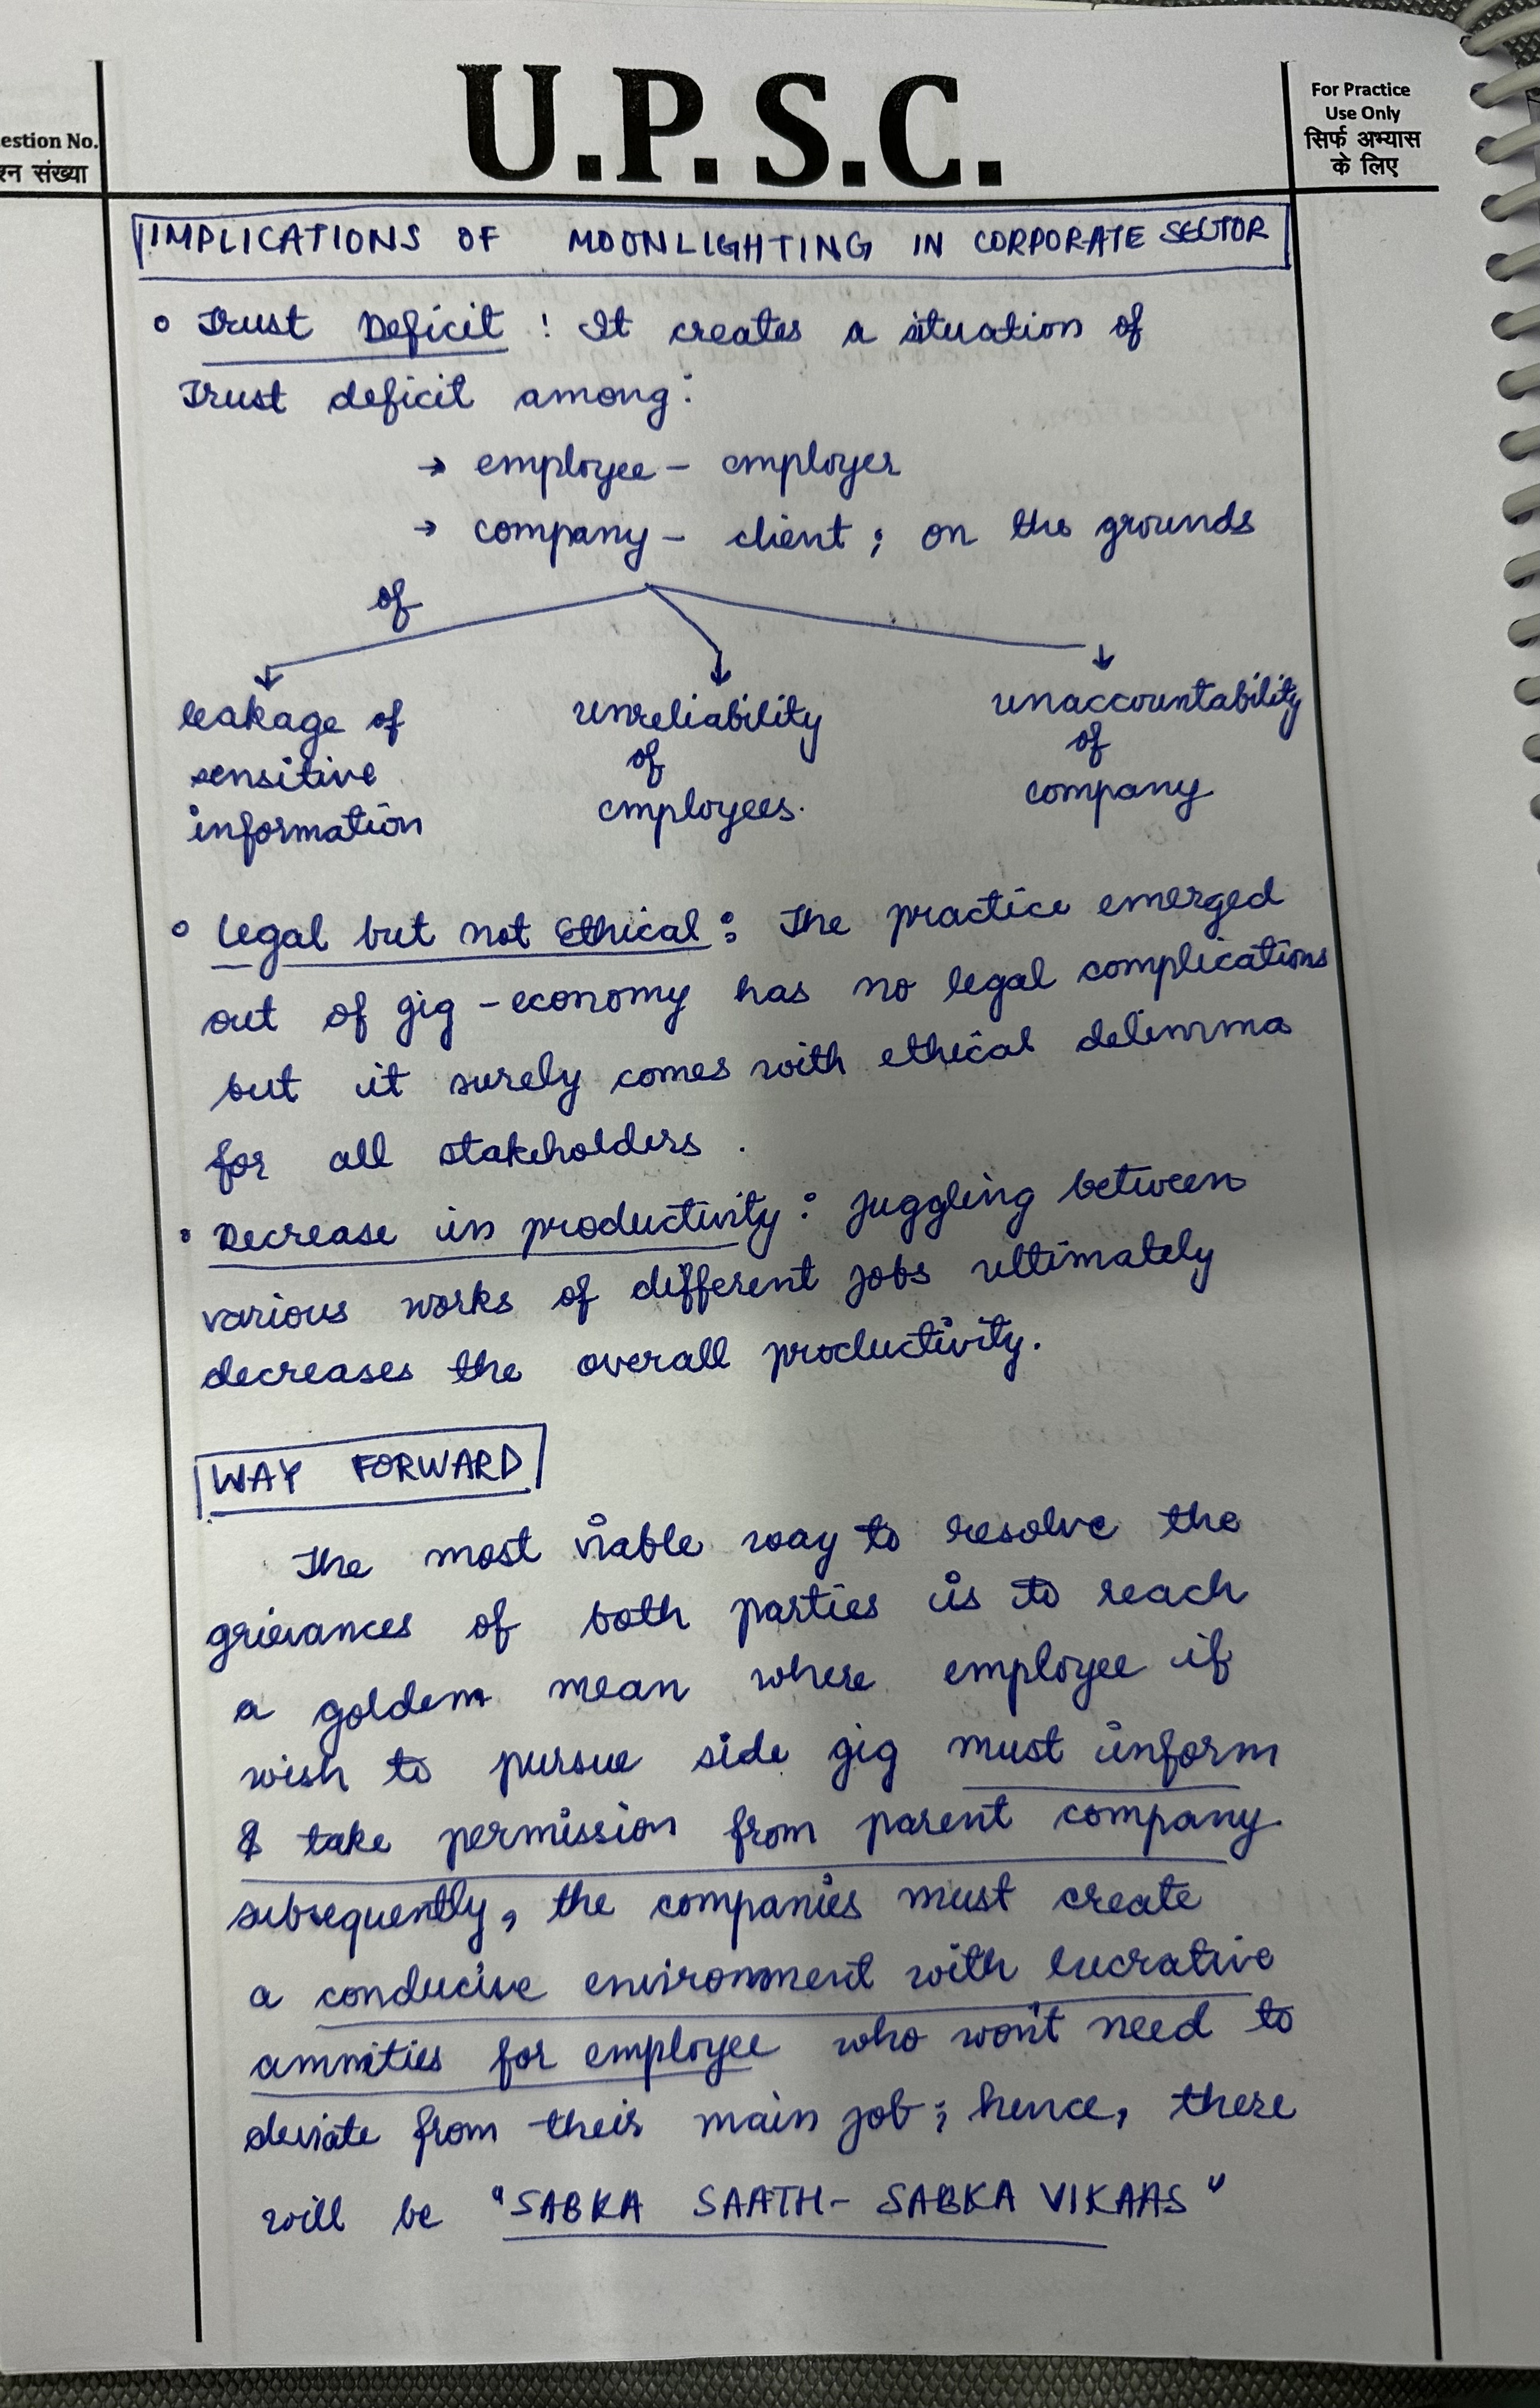 estion No.
श्न संख्या
U.P.S.C.
For Practice
Use Only
सिर्फ अभ्यास
के लिए
IMPLICATIONS OF MOONLIGHTING IN CORPORATE SECTOR
Trust Deficit : It creates a situation of
Trust deficit among:
→ employee - employer
→ company - client ; on the grounds
of
leakage of
sensitive
information
unreliability
of
employees.
unaccountability
of
company
Legal but not Ethical : The practice emerged
out of gig - economy has no legal complications
but it surely comes with ethical delimma
for all stakeholders .
Decrease in productivity : juggling between
various works of different jobs ultimately
decreases the overall productivity.
WAY FORWARD
The most viable way to resolve the
grievances of both parties is to reach
a golden mean where employee if
wish to pursue side gig must inform
& take permission from parent company
subsequently, the companies must create
a conducive environment with lucrative
amnities for employee who won't need to
deviate from their main job ; hence, there
will be "SABKA SAATH - SABKA VIKAAS"